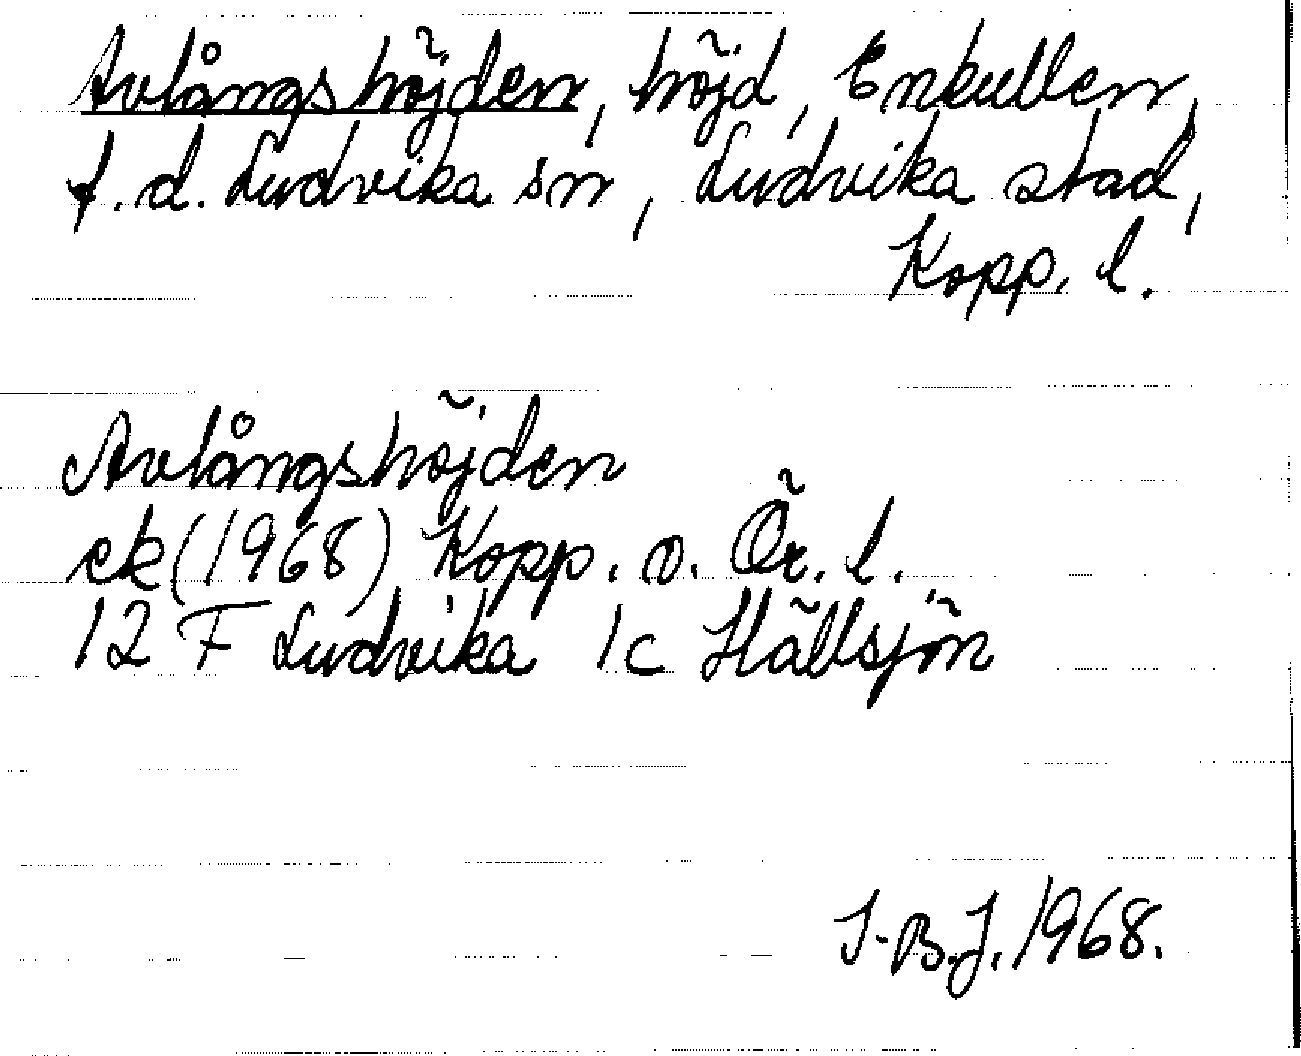 Avlångshöjden, höjd, Enkullen,
f.d. Ludvika sn, Ludvika stad,
Kopp. l.
Avlångshöjden
ek (1968) Kopp. o. Ör. l.
12 F Ludvika 1c Hällsjön
I-B.J. 1968.